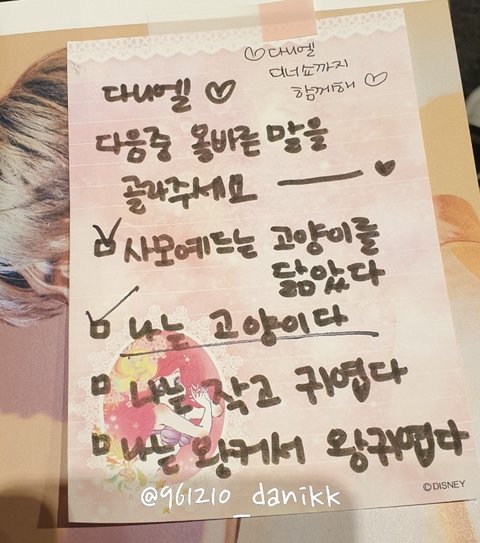 ♡다니엘
디너쇼까지
함께해 ♡
다니엘 ♡
다음중 올바른 말을
골라주세요 ——— ♥
☑ 사모예드는 고양이를
닮았다
☑ 나는 고양이다
□ 나는 작고 귀엽다
□ 나는 왕커서 왕귀엽다
©DISNEY
@961210_danikk